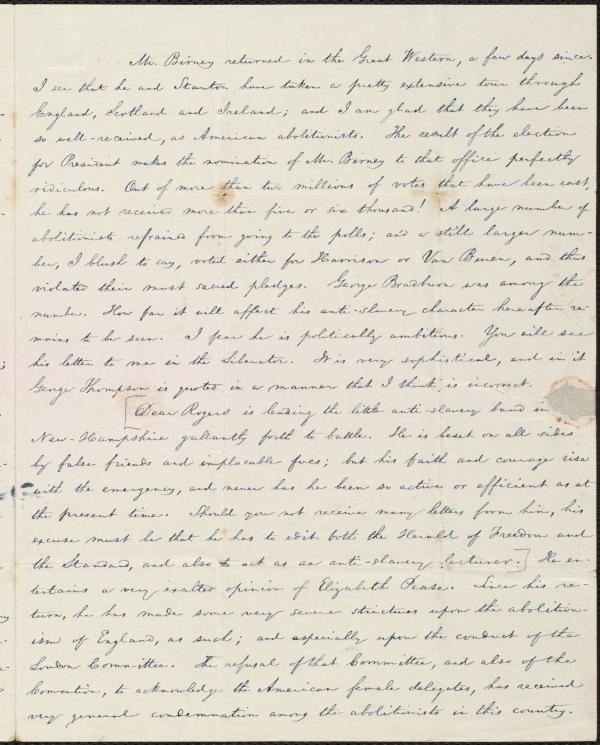 Mr. Birney returned in the Great Western, a few days since.
I see that he and Stanton have taken a pretty extensive tour through
England, Scotland and Ireland; and I am glad that they have been
so well-received, as American abolitionists. The result of the election
for President makes the nomination of Mr. Birney to that office perfectly
ridiculous. Out of more than two millions of votes that have been cast,
he has not received more than five or six thousand! A large number of
abolitionists refrained from going to the polls; and a still larger num-
ber, I blush to say, voted either for Harrison or Van Buren, and thus
violated their most sacred pledges. George Bradburn was among the
number. How far it will affect his anti-slavery character hereafter re-
mains to be seen. I fear he is politically ambitious. You will see
his letter to me in the Liberator. It is very sophistical, and in it
George Thompson is quoted in a manner that I think is incorrect.
[Dear Rogers is leading the little anti-slavery band in
New-Hampshire gallantly forth to battle. He is beset on all sides
by false friends and implacable foes; but his faith and courage rise
with the emergency, and never has he been so active or efficient as at
the present time. Should you not receive many letters from him, his
excuse must be that he has to edit both the Herald of Freedom and
the Standard, and also to act as an anti-slavery lecturer.] He en-
tertains a very exalted opinion of Elizabeth Pease. Since his re-
turn, he has made some very severe strictures upon the abolition-
ism of England, as such; and especially upon the conduct of the
London Committee. The refusal of that Committee, and also of the
Convention, to acknowledge the American female delegates, has received
very general condemnation among the abolitionists in this country.